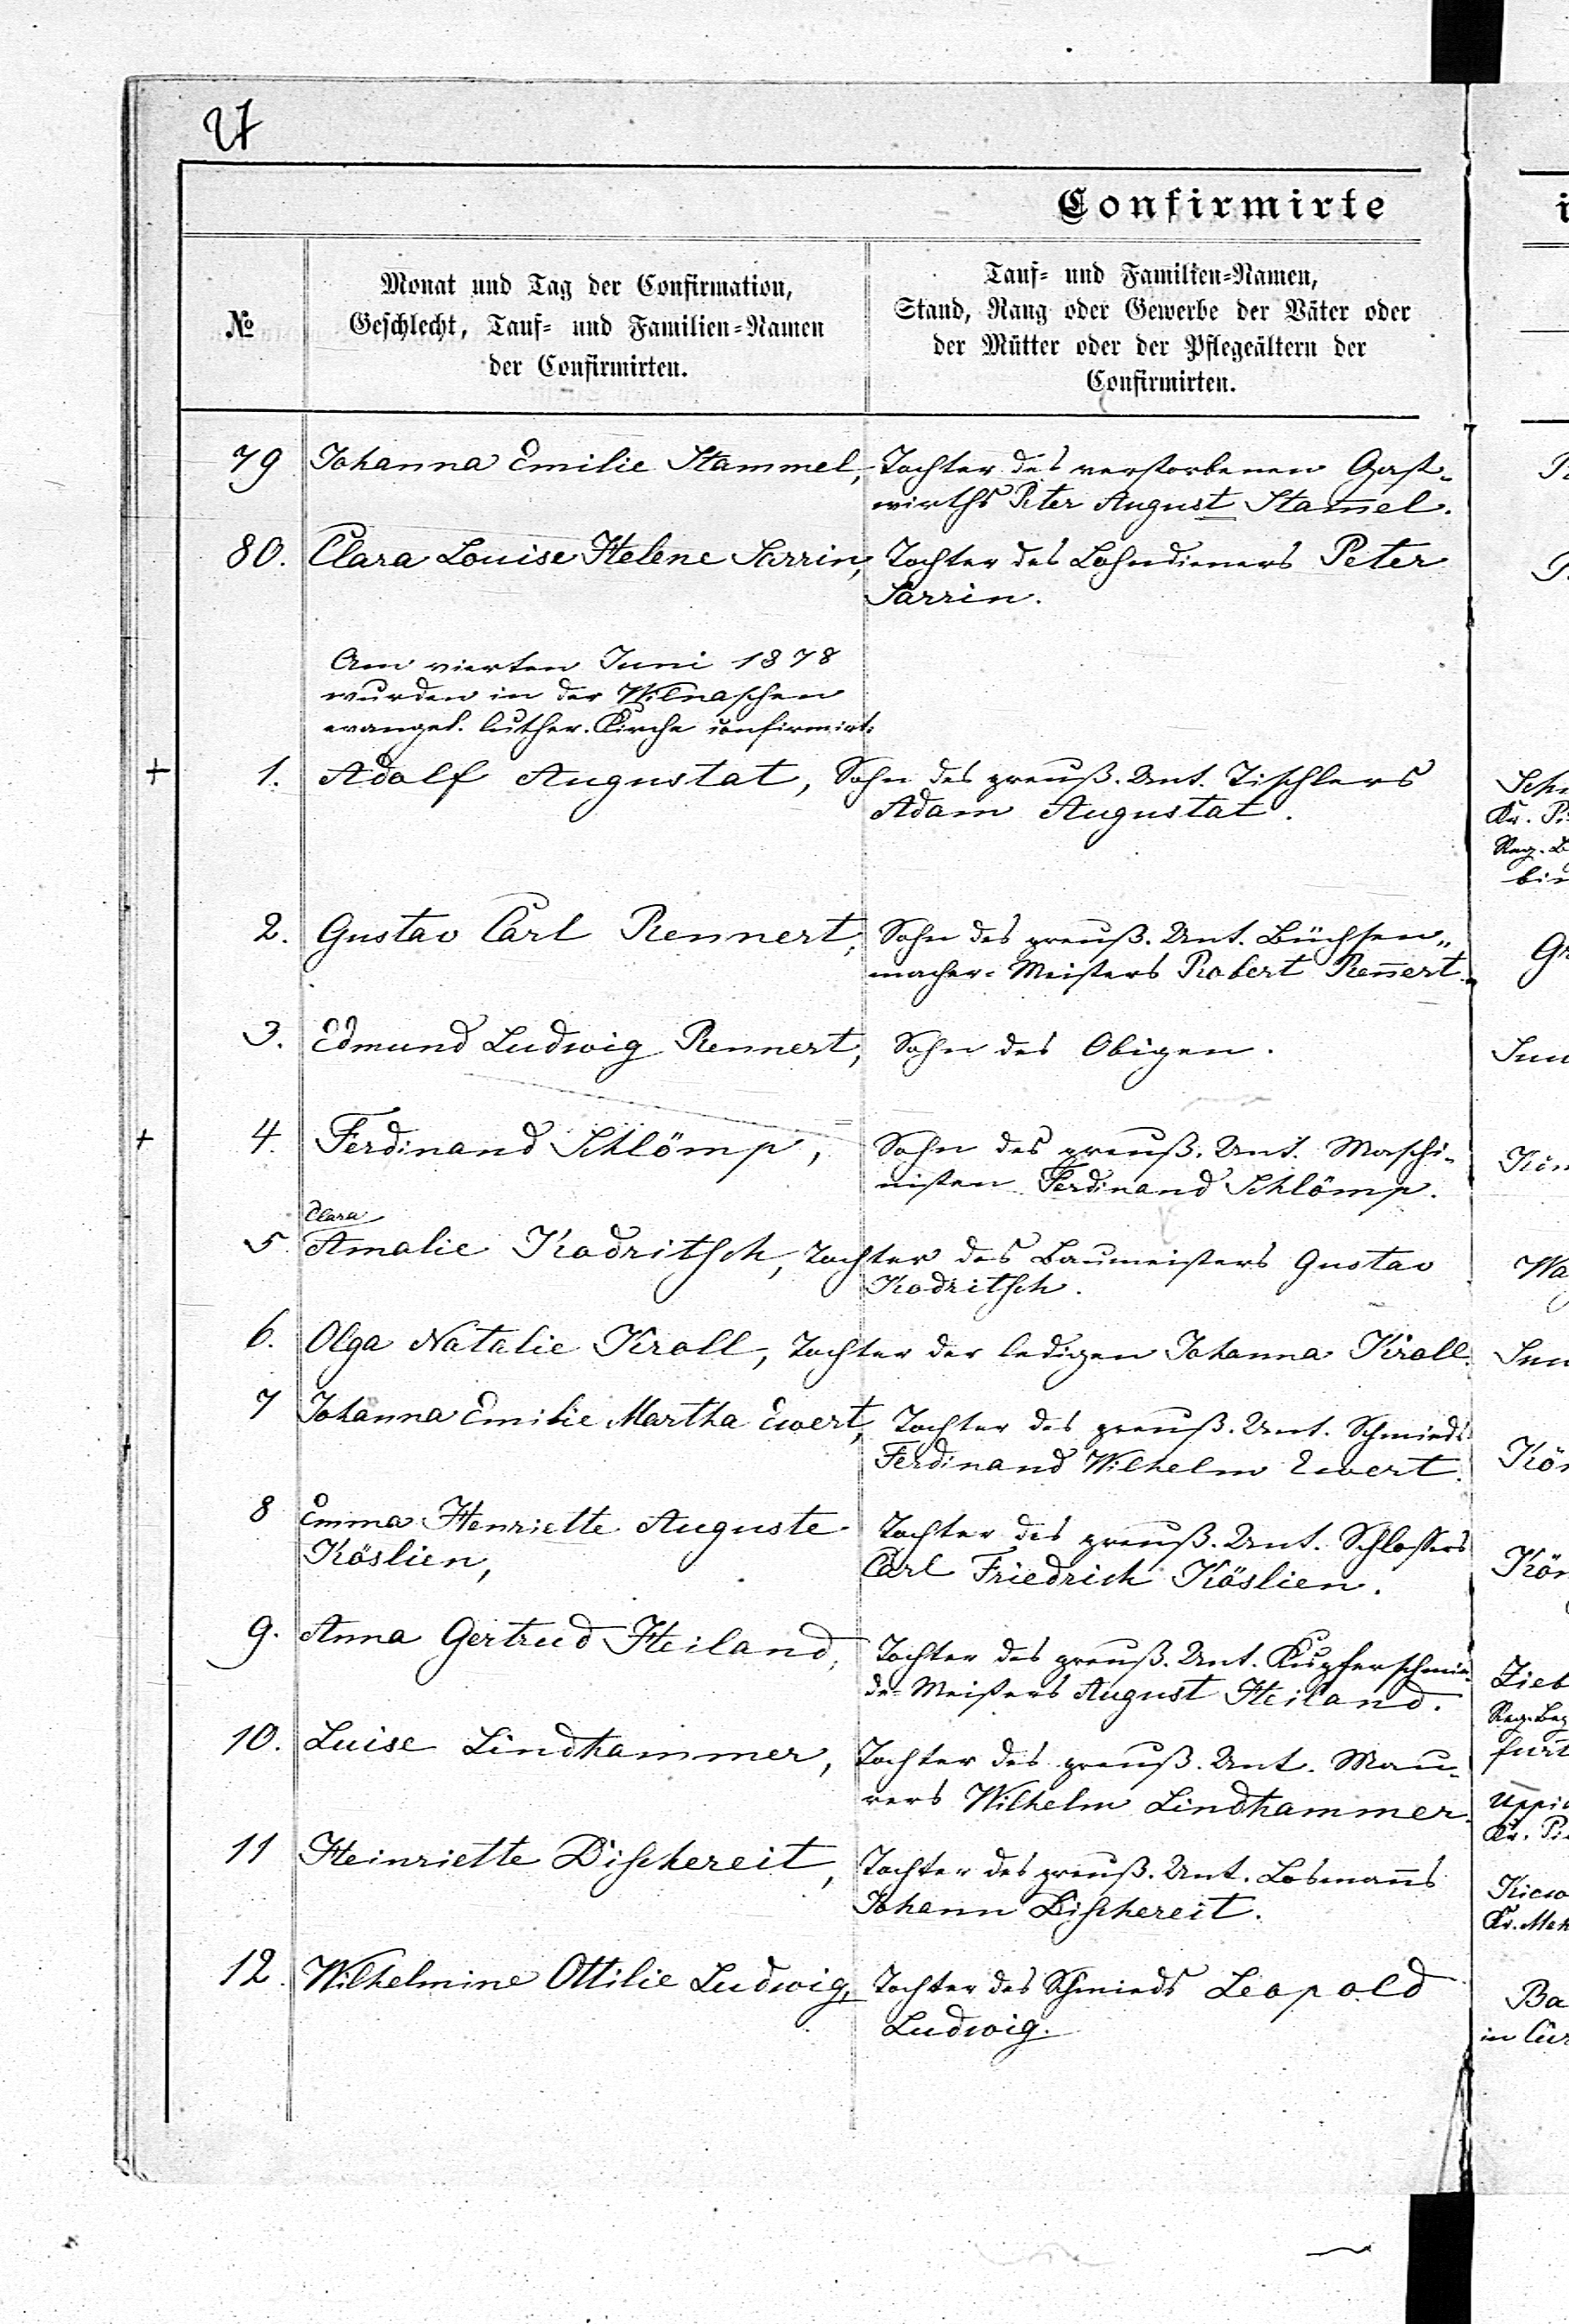 Confirmirte
№
Monat und Tag der Confirmation,
Geschlecht, Tauf- und Familien-Namen
der Confirmirten.
Tauf- und Familien-Namen,
Stand, Rang oder Gewerbe der Väter oder
der Mütter oder der Pflegeältern der
Confirmirten.
79 Johanna Emilie Stammel, Tochter des verstorbenen Gast-
wirths Peter August Stam̅el.
80. Clara Louise Helene Sarrin, Tochter des Lohndieners Peter
Sarrin.
Am vierten Juni 1878
wurden in der Wilnaschen
evangel. luther. Kirche confirmirt:
+ 1. Adolf Augustat, Sohn des preuß. Unt. Tischlers
Adam Augustat.
2. Gustav Carl Rennert, Sohn des preuß. Unt. Büchsen„
macher-Meisters Robert Ren̅ert.
3. Edmund Ludwig Rennert, Sohn des Obigen.
+ 4. Ferdinand Schlömp, Sohn des preuß. Unt. Maschi-
nisten Ferdinand Schlömp.
Clara
5. Amalie Kodritsch, Tochter des Baumeisters Gustav
Kodritsch.
6. Olga Natalie Kroll, Tochter der ledigen Johanna Kroll.
7 Johanna Emilie Martha Ewert, Tochter des preuß. Unt. Schmieds
Ferdinand Wilhelm Ewert.
8 Emma Henriette Auguste Tochter des preuß. Unt. Schlossers
Köslien, Carl Friedrich Köslien.
9. Anna Gertrud Heiland, Tochter des preuß. Unt. Kupferschmie-
de-Meisters August Heiland.
10. Luise Lindhammer, Tochter des preuß. Unt. Mau-
rers Wilhelm Lindhammer.
11 Heinriette Dischereit, Tochter des preuß. Unt. Losman̅s
Johann Dischereit.
12. Wilhelmine Ottilie Ludwig, Tochter des Schmieds Leopold
Ludwig.